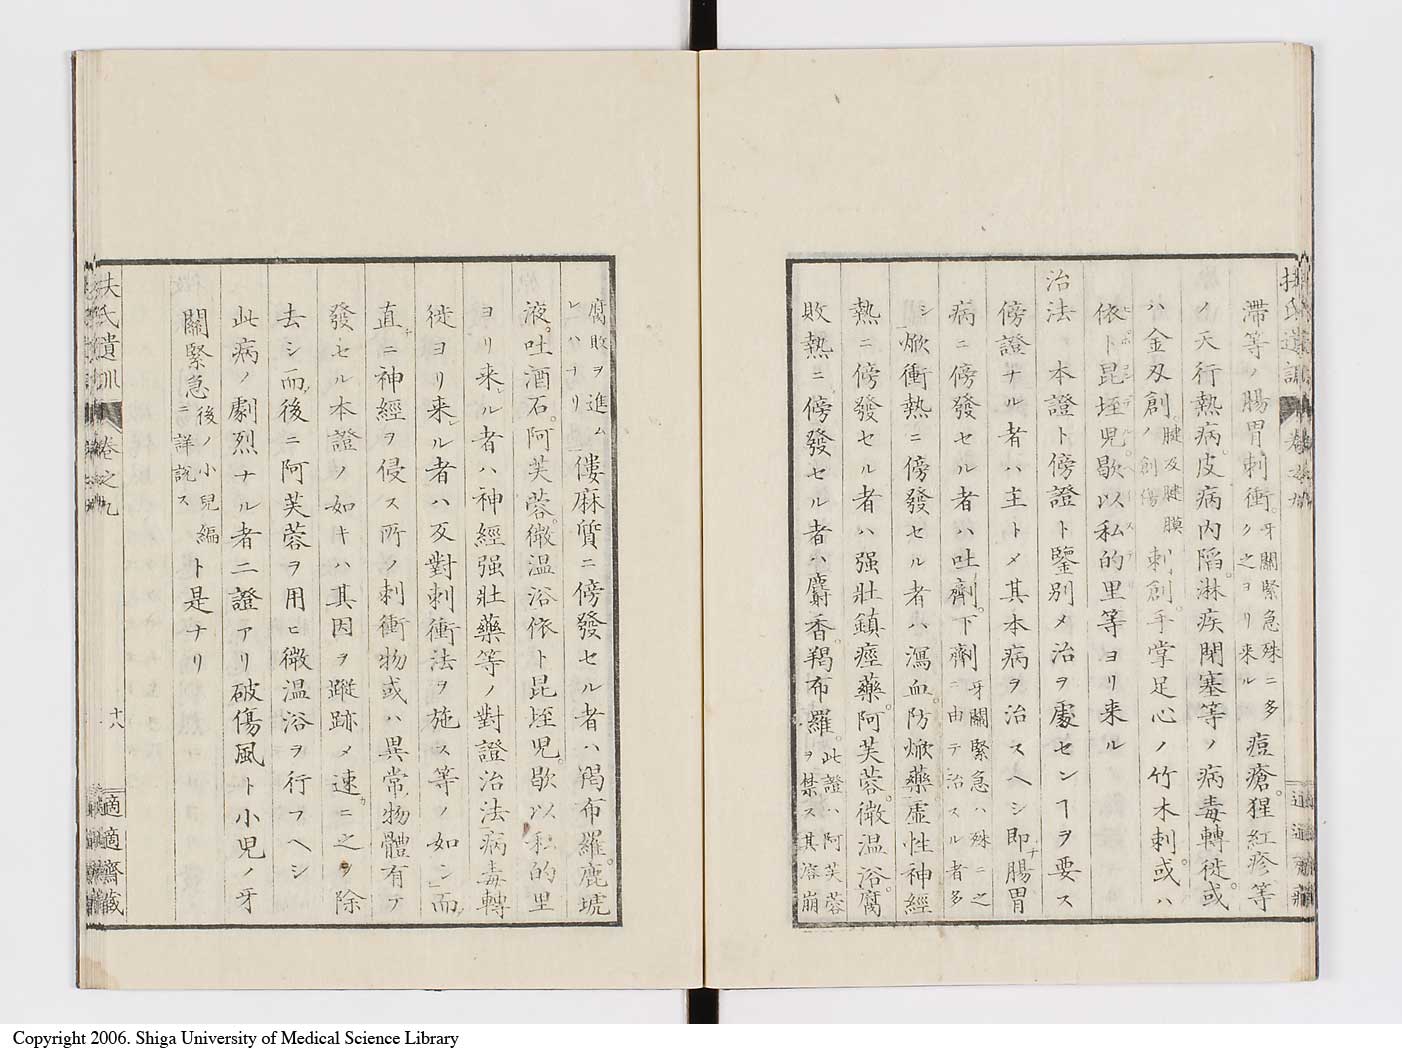 扶氏遺訓 卷之九
滯等ノ腸胃刺衝。牙關緊急殊ニ多ク之ヨリ来ル 痘瘡。猩紅疹等
ノ天行熱病。皮病内陷。淋疾閉塞等ノ病毒轉徙。或
ハ金刃創。腱及腱膜ノ創傷 刺創。手掌足心ノ竹木刺。或ハ
依卜昆垤児。歇以私的里等ヨリ来ル
治法 本證ト傍證ト鑒別メ治ヲ處センヿヲ要ス
傍證ナル者ハ主トメ其本病ヲ治スヘシ即チ腸胃
病ニ傍發セル者ハ吐劑。下劑 牙關緊急ハ殊ニ之ニ由テ治スル者多
シ 焮衝熱ニ傍發セル者ハ瀉血。防焮藥。虚性神經
熱ニ傍發セル者ハ强壯鎮痙藥。阿芙蓉。微温浴。腐
敗熱ニ傍發セル者ハ麝香。羯布羅。此證ハ阿芙蓉ヲ禁ス其溶崩
腐敗ヲ進ムレハナリ 僂麻質ニ傍發セル者ハ羯布羅。鹿琥
液。吐酒石。阿芙蓉。微温浴依卜昆垤児。歇以私的里
ヨリ来ル者ハ神經强壯藥等ノ對證治法 病毒轉
徙ヨリ来ル者ハ反對刺衝法ヲ施ス等ノ如シ 而
直チニ神經ヲ侵ス所ノ刺衝物或ハ異常物體有テ
發セル本證ノ如キハ其因ヲ蹤跡メ速ニ之ヲ除
去シ而後ニ阿芙蓉ヲ用ヒ微温浴ヲ行フヘシ
此病ノ劇烈ナル者二證アリ破傷風ト小児ノ牙
關緊急 後ノ小兒編ニ詳說ス ト是ナリ
扶氏遺訓 卷之九 十八 適適齋藏